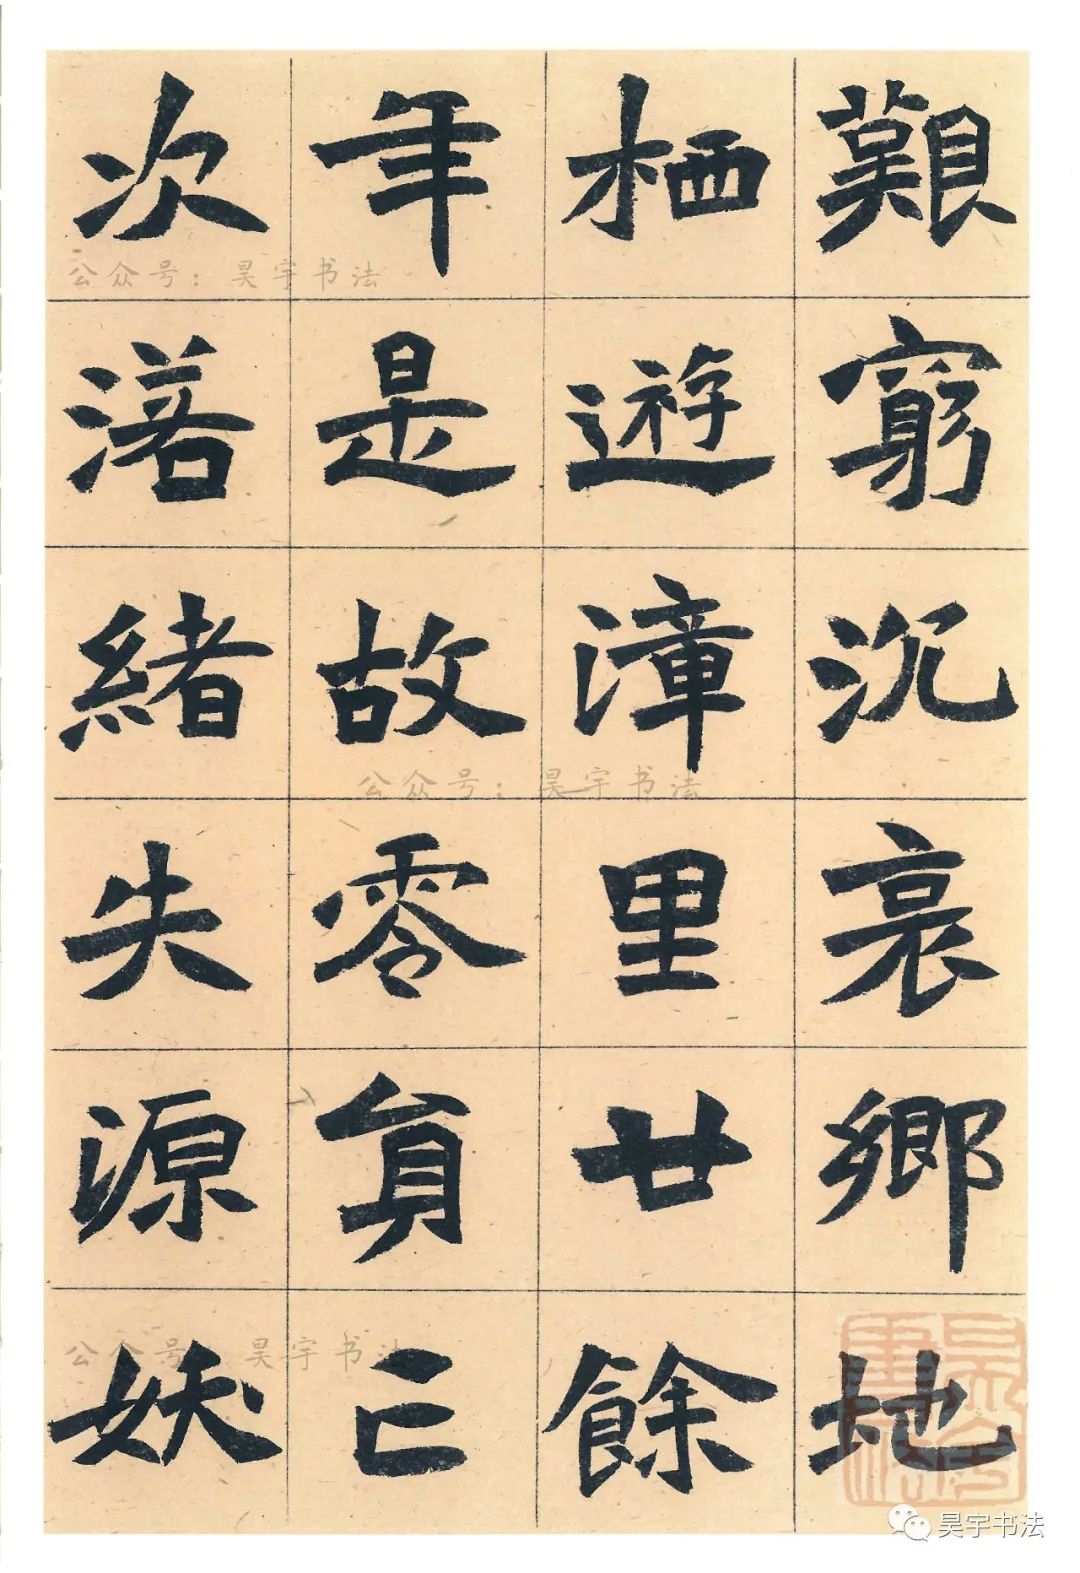 艱窮沉哀鄉地
栖遊漳里廿餘
年是故零貟已
次落緒失源妖
公众号：昊宇书法
公众号：昊宇书法
公众号：昊宇书法
昊宇书法